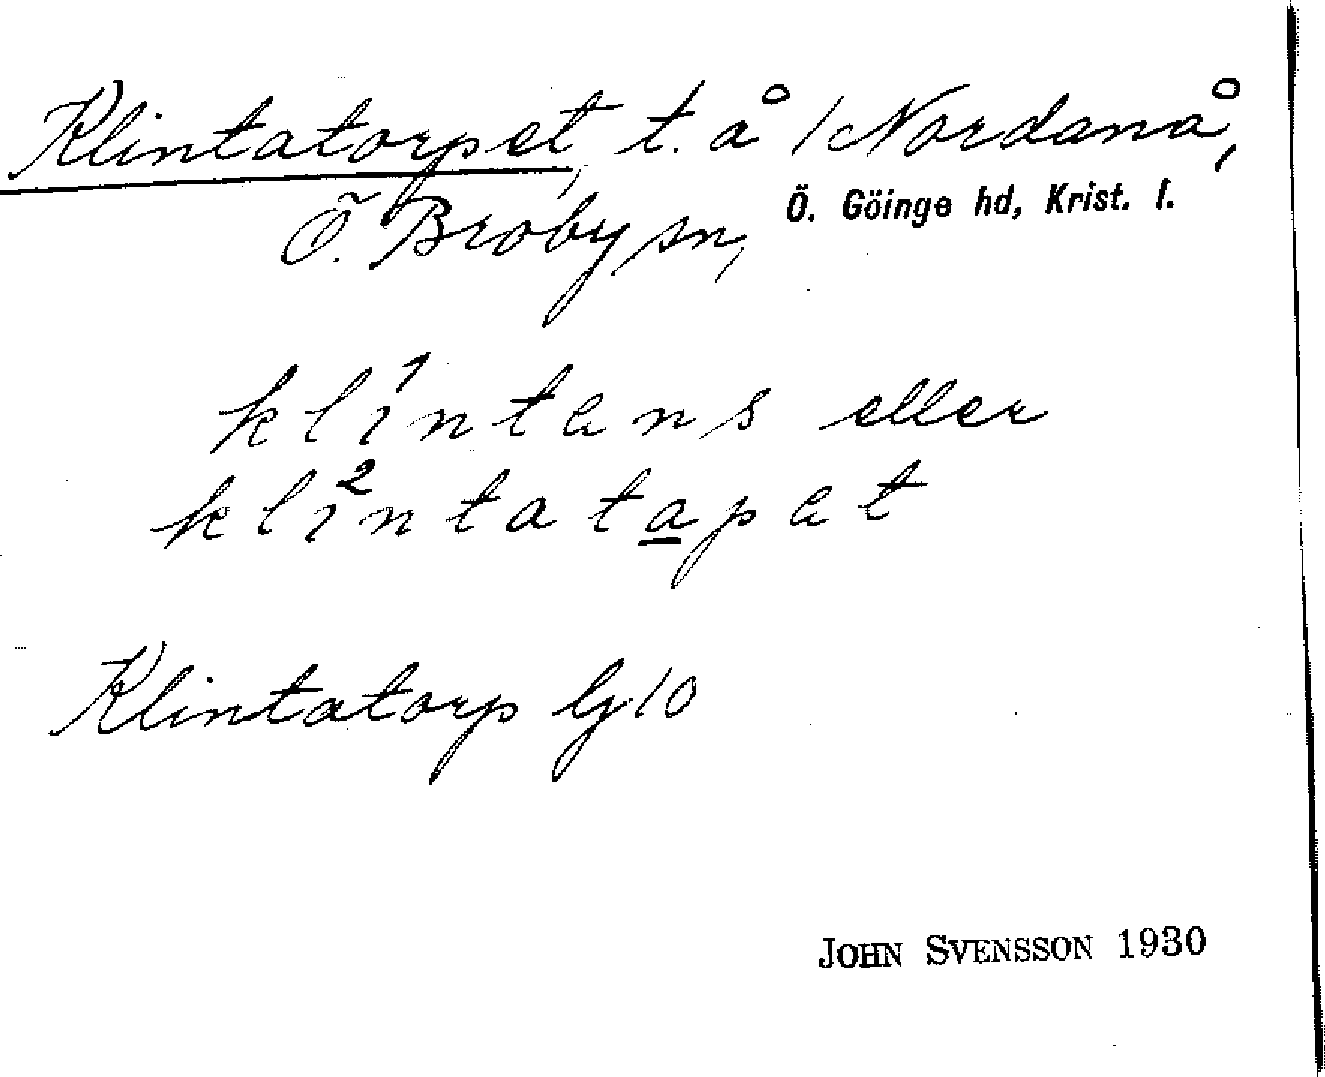 Klintatorpet, t. å /Nordanå,
Ö. Broby sn, Ö. Göinge hd, Krist. l.
kli¹ntans eller
kli²ntatapat
Klintatorp lj 10
JOHN SVENSSON 1930